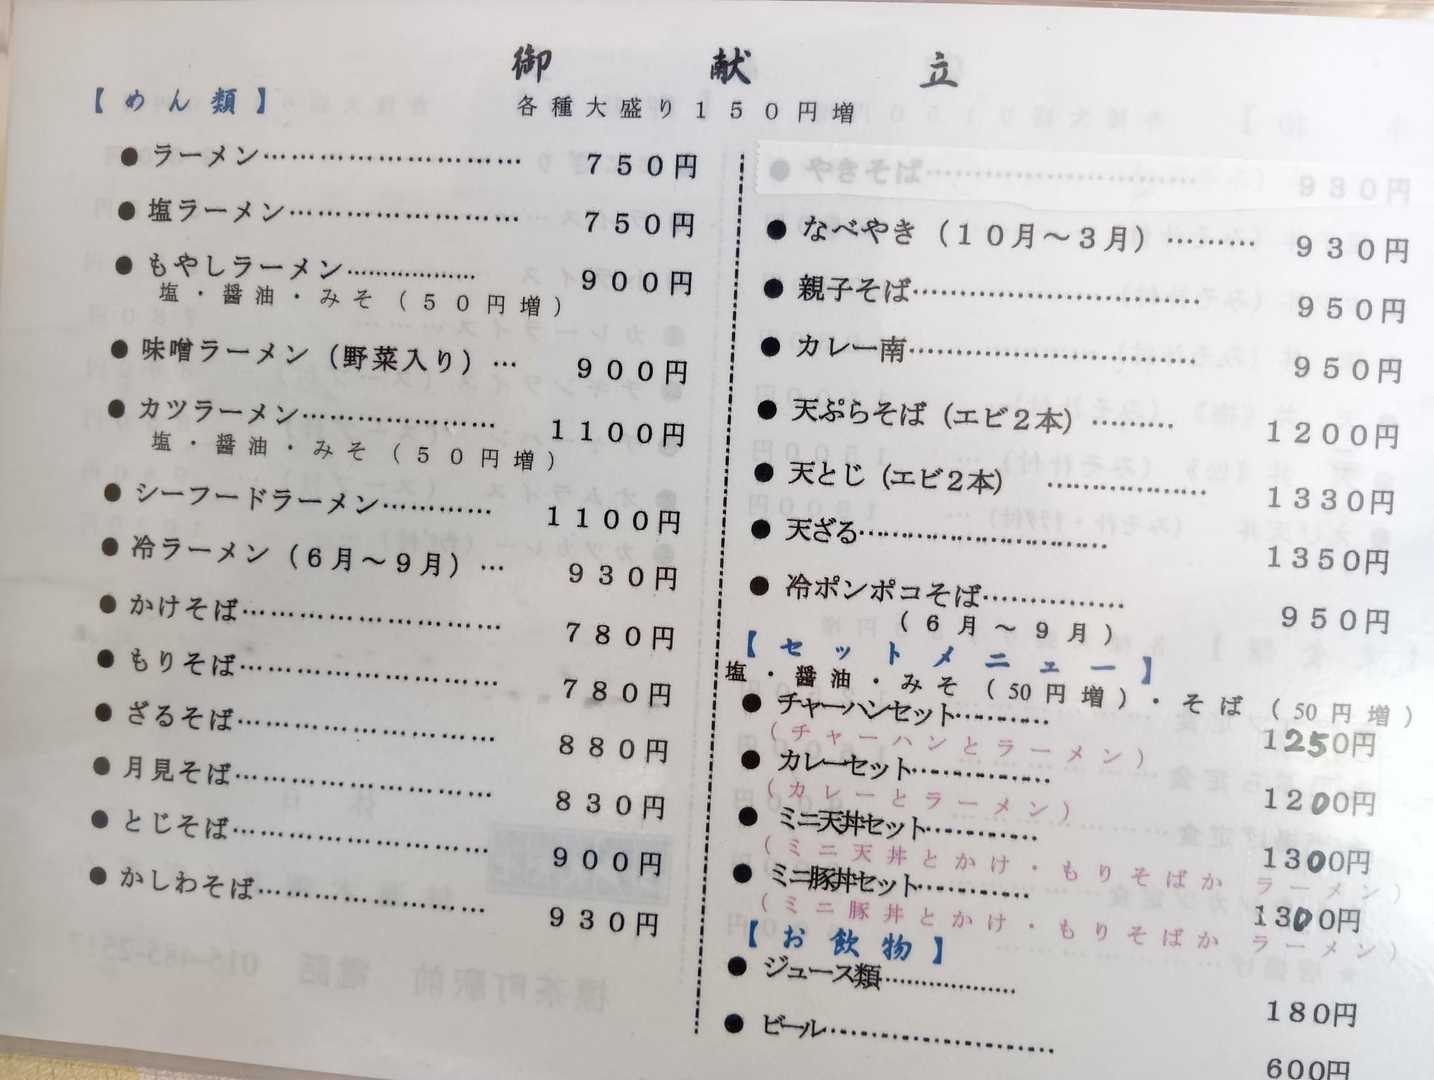 御献立
【めん類】
各種大盛り１５０円増
● ラーメン………………………… ７５０円
● 塩ラーメン……………………… ７５０円
● もやしラーメン……………… ９００円
塩・醤油・みそ（５０円増）
● 味噌ラーメン（野菜入り）… ９００円
● カツラーメン…………………… １１００円
塩・醤油・みそ（５０円増）
● シーフードラーメン………… １１００円
● 冷ラーメン（６月～９月）… ９３０円
● かけそば………………………… ７８０円
● もりそば………………………… ７８０円
● ざるそば………………………… ８８０円
● 月見そば………………………… ８３０円
● とじそば………………………… ９００円
● かしわそば……………………… ９３０円
● やきそば………………………… ９３０円
● なべやき（１０月～３月）……… ９３０円
● 親子そば………………………… ９５０円
● カレー南………………………… ９５０円
● 天ぷらそば（エビ２本）……… １２００円
● 天とじ（エビ２本） ……………… １３３０円
● 天ざる………………………… １３５０円
● 冷ポンポコそば…………… ９５０円
（６月～９月）
【セットメニュー】
塩・醤油・みそ（50円増）・そば（50円増）
● チャーハンセット………… １２５０円
（チャーハンとラーメン）
● カレーセット…………… １２００円
（カレーとラーメン）
● ミニ天丼セット………… １３００円
（ミニ天丼とかけ・もりそばか ラーメン）
● ミニ豚丼セット………… １３００円
（ミニ豚丼とかけ・もりそばか ラーメン）
【お飲物】
● ジュース類……………… １８０円
● ビール…………………… ６００円